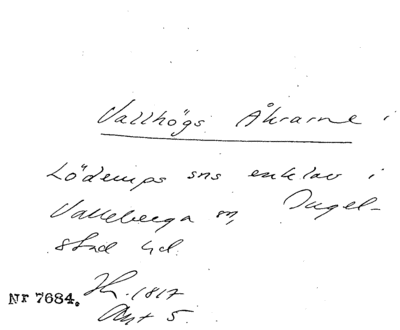 Vallhögs Åkrarne i
Löderups sns enklav i
Valleberga sn, Ingel-
stad hd.
Nr 7684. Ht. 1817
Akt 5.